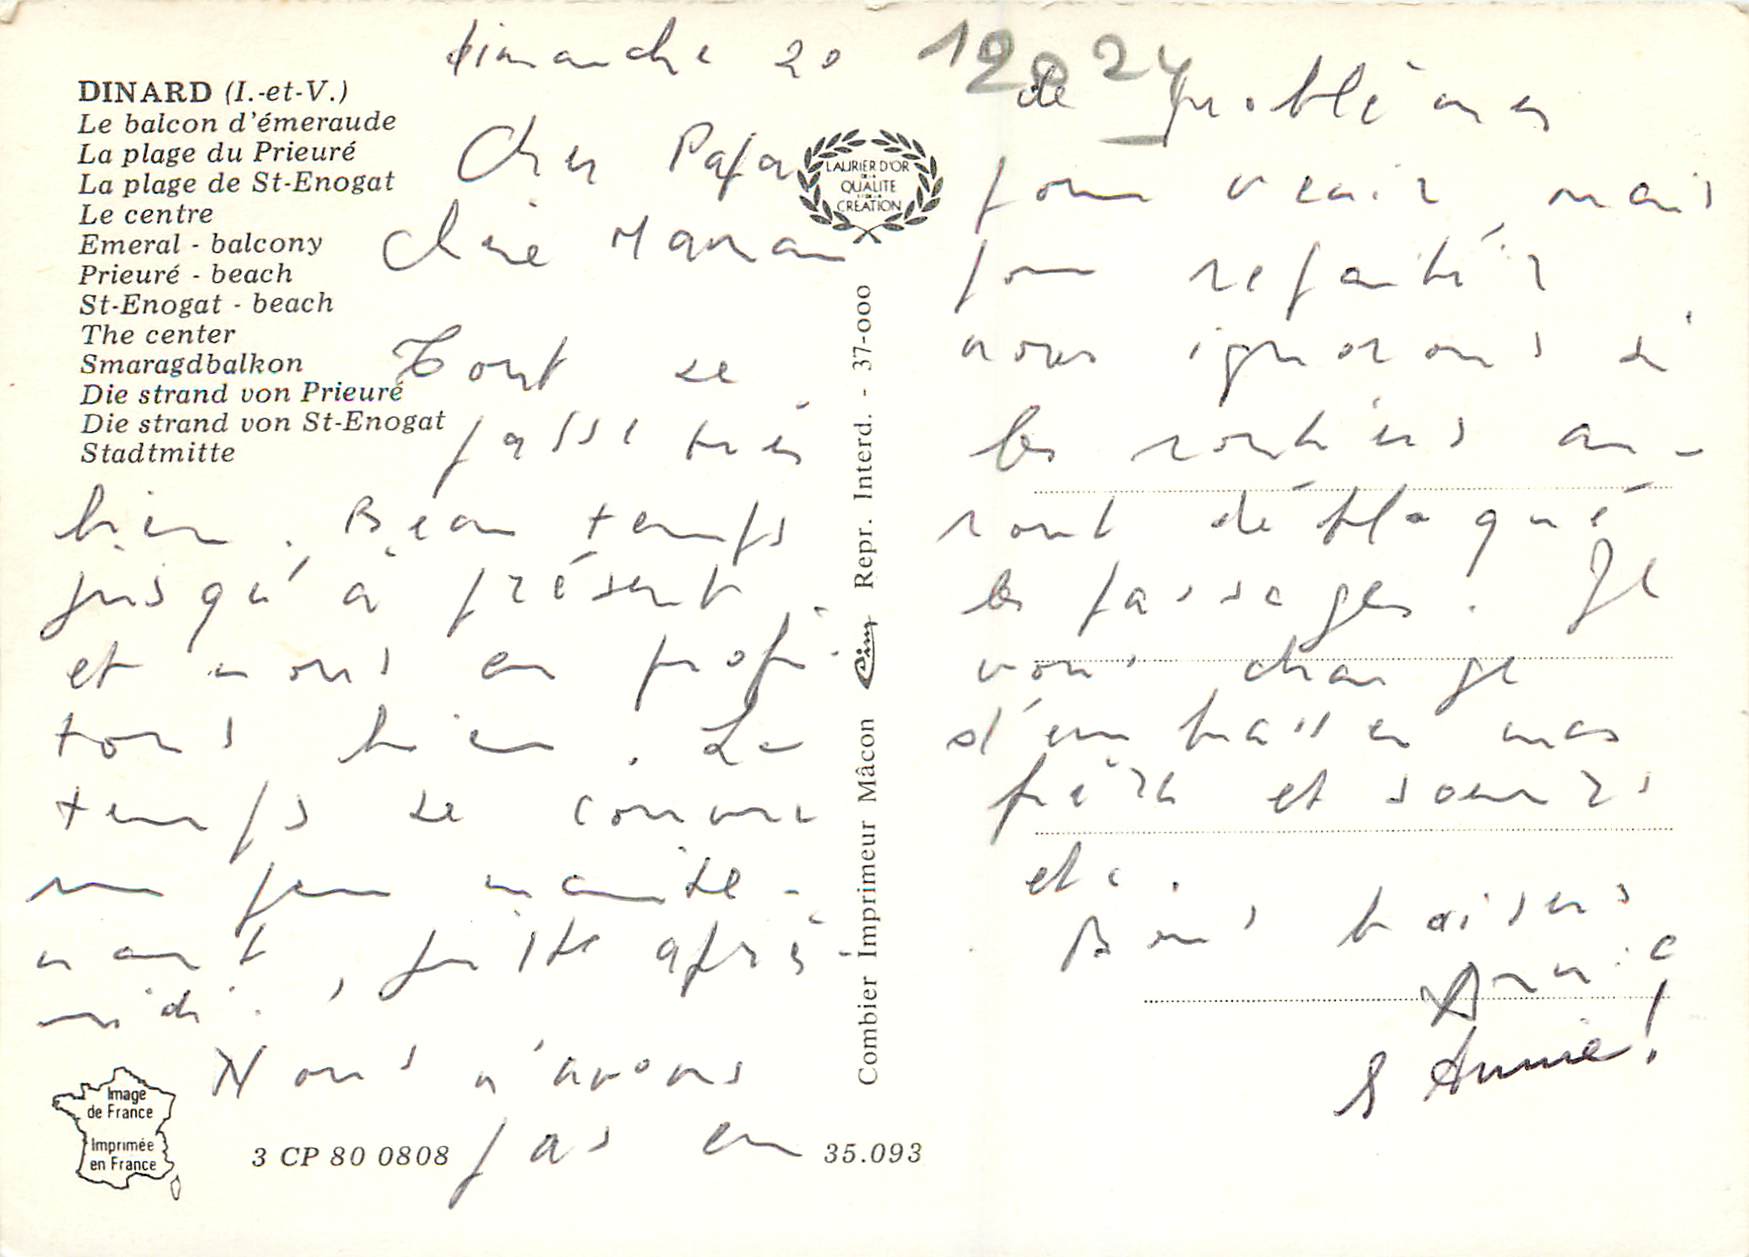 dimanche 20
DINARD (I.-et-V.)
Le balcon d'émeraude
La plage du Prieuré
La plage de St-Enogat
Le centre
Emeral - balcony
Prieuré - beach
St-Enogat - beach
The center
Smaragdbalkon
Die strand von Prieuré
Die strand von St-Enogat
Stadtmitte
Cher Papa
Chère Maman
Tout se
passe très
bien. Beau temps
jusqu'à présent.
et nous en profi-
tons bien. Le
temps se couvre
un peu mainte-
nant, juste après-
midi.
Nous n'avons
pas eu
Image
de France
Imprimée
en France
3 CP 80 0808
35.093
LAURIER D'OR
DE LA
QUALITE
ET DE LA
CRÉATION
Combier Imprimeur Mâcon Cim Repr. Interd. - 37-000
de problèmes
pour venir, mais
pour repartir
nous ignorons si
les routiers au-
ront débloqué
les passages. Je
vous charge
d'embrasser mes
frère et soeurs
etc.
Bons baisers
Annie
& Annie!